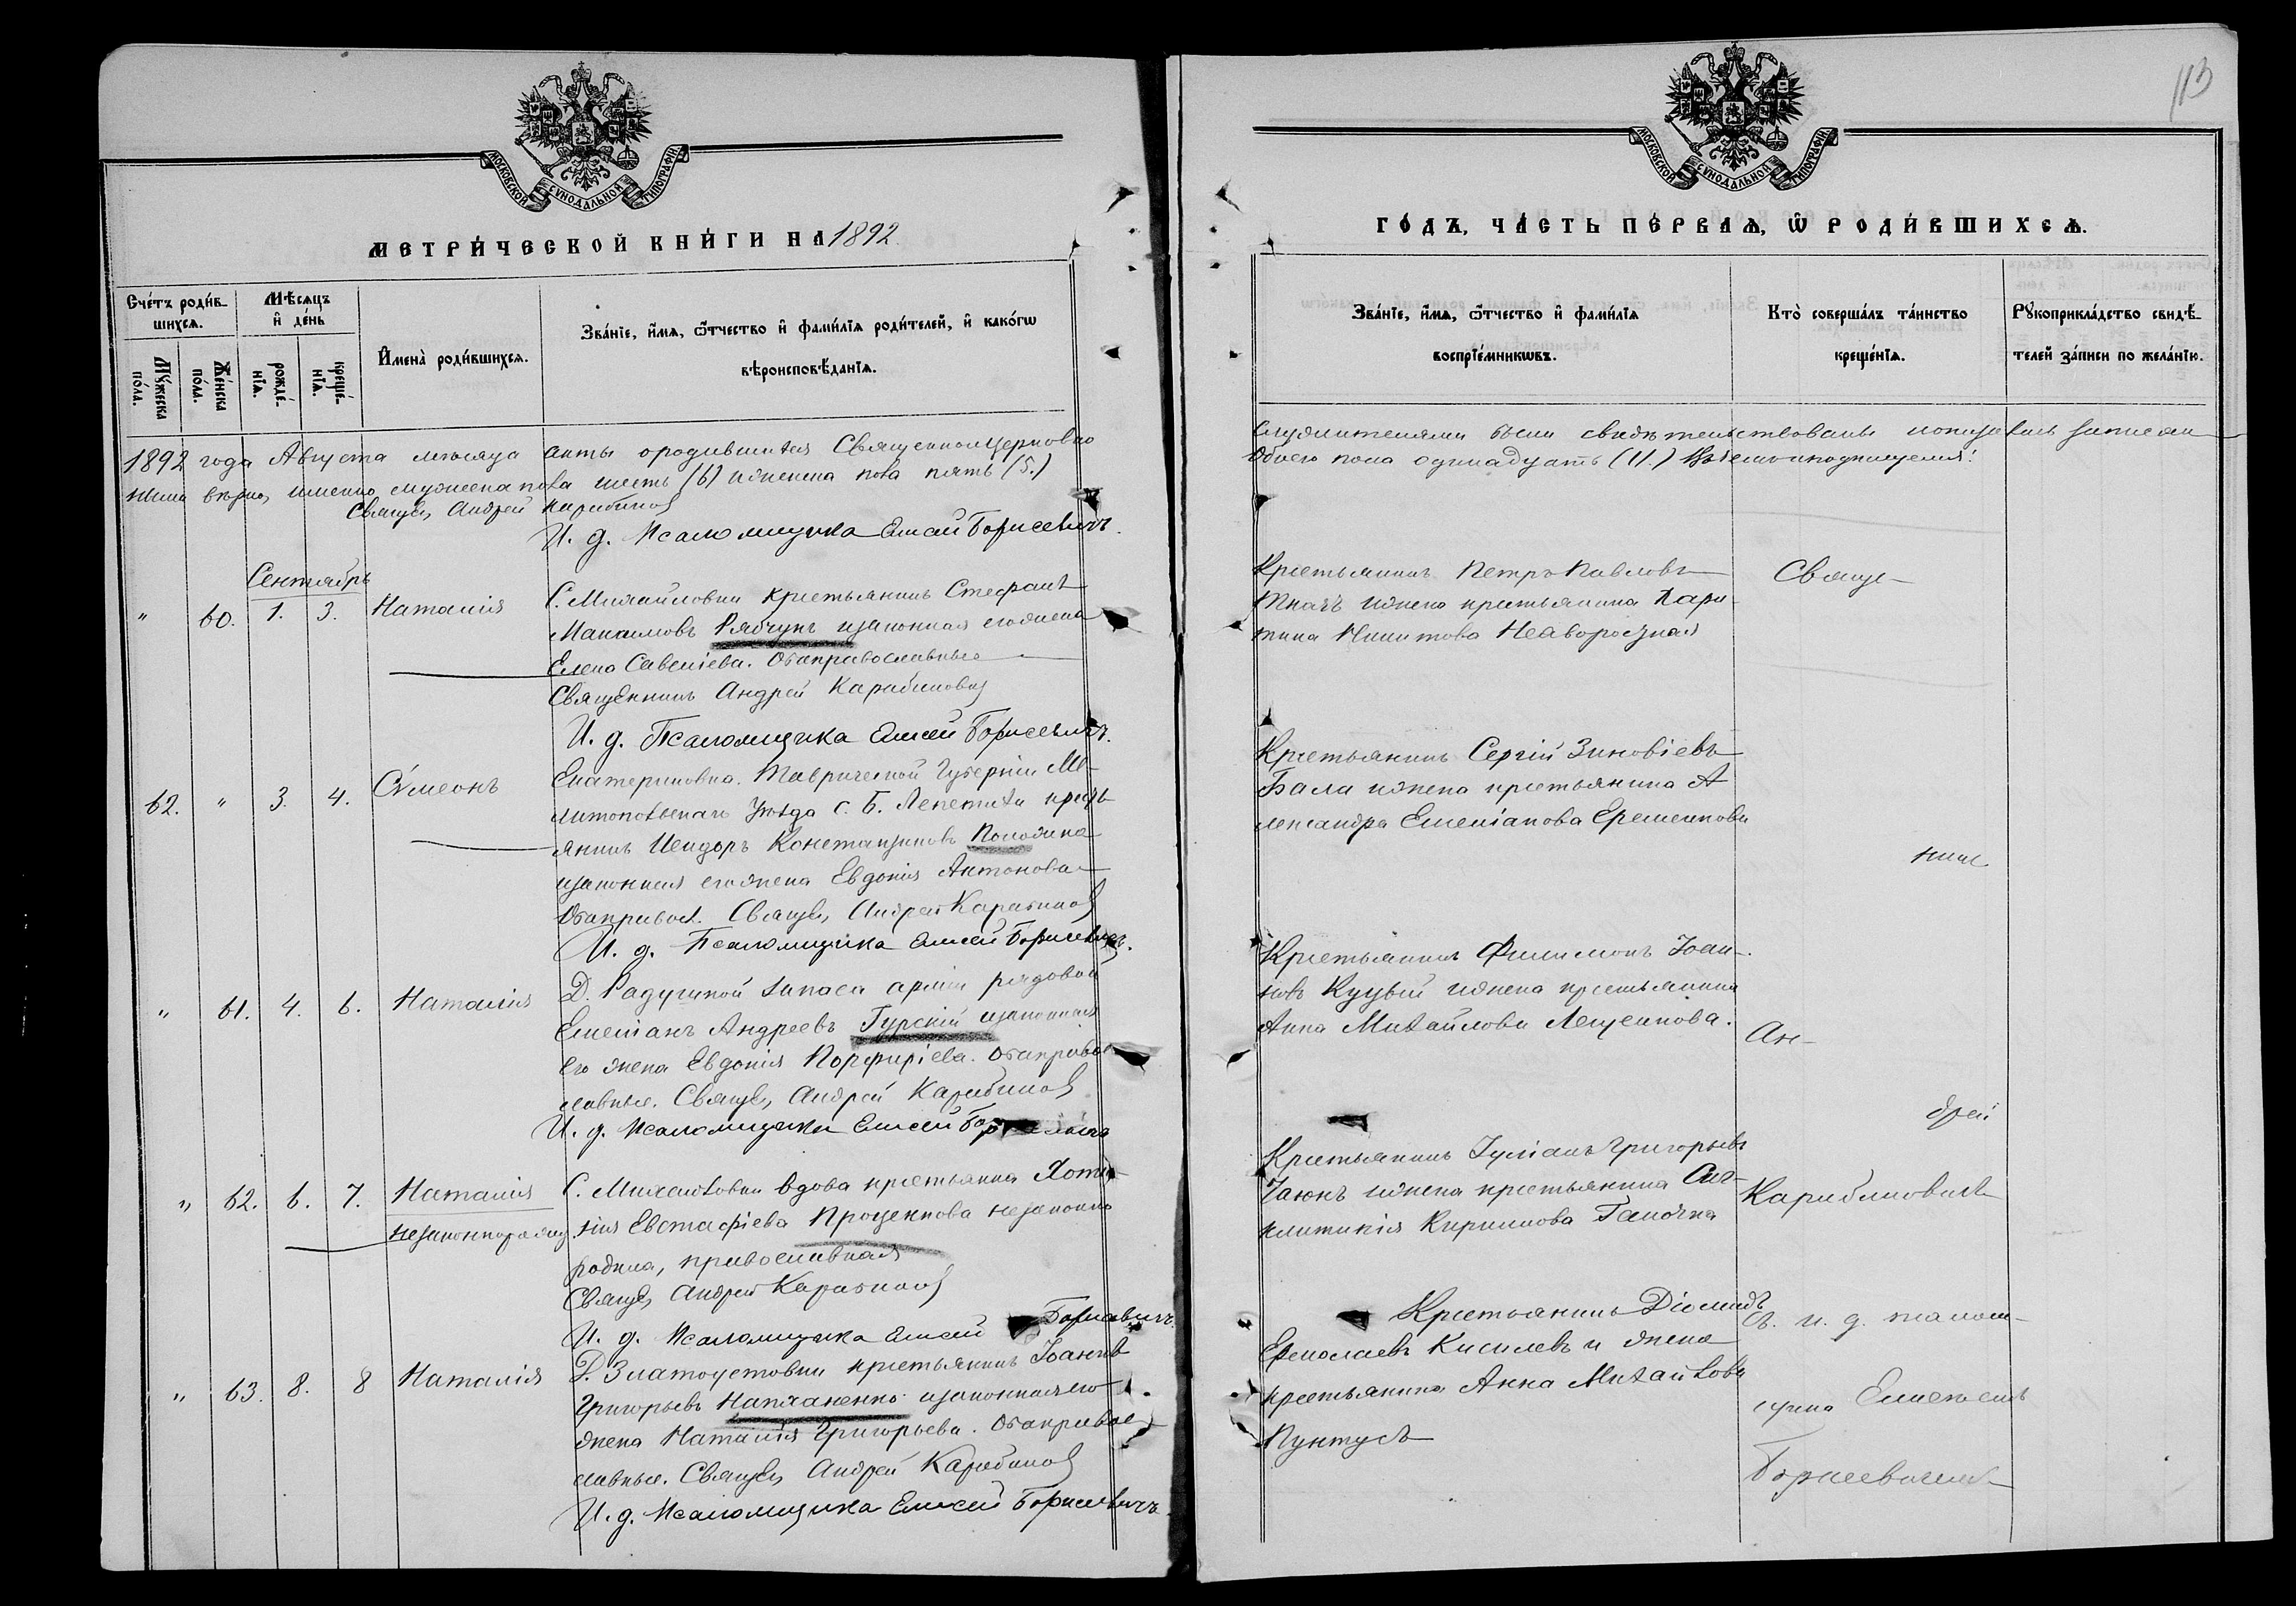 113
МОСКОВСКОЙ СѴНОДАЛЬНОЙ ТИПОГРАФІИ.
МОСКОВСКОЙ СѴНОДАЛЬНОЙ ТИПОГРАФІИ.
МЕТРИ́ЧЕСКОЙ КНИ́ГИ НА 1892.
ГО́ДЪ, ЧА́СТЬ ПЕ́РВАѦ, Ѡ҆ РОДИ́ВШИХСѦ.
Сче́тъ роди́в-
шихсѧ.
Мꙋ́жеска по́ла.
Же́нска по́ла.
Мѣ́сѧцъ
и҆ де́нь
рожде́-
нїѧ.
креще́-
нїѧ.
И҆мена̀ роди́вшихсѧ.
Зва́нїе, и҆́мѧ, ѻ҆́тчество и҆ фами́лїѧ роди́телей, и҆ како́гѡ
вѣроисповѣ́данїѧ.
Зва́нїе, и҆́мѧ, ѻ҆́тчество и҆ фами́лїѧ
воспрїе́мникѡвъ.
Кто̀ соверша́лъ та́инство
креще́нїѧ.
Рꙋкоприкла́дство свидѣ́-
телей за́писи по жела́нїю.
1892 года Августа мѣсяца акты о родившихся Священноцерковно
служителями были свидѣтельствованы
ными вѣрно, именно мужеска пола шесть (6) и женска пола пять (5.)
обоего пола одинадцать (11.)
Священ. Андрей Карабиновъ
И. д. Псаломщика Елисей Борисевичъ.
Сентябрь
" 60. 1. 3. Наталія
С. Михайловки крестьянинъ Стефанъ
Максимовъ Рябчунъ и законная его жена
Елена Савеліева. Оба православные
Священникъ Андрей Карабиновъ
И. д. Псаломщика Елисей Борисевичъ.
Крестьянинъ Петръ Павловъ
Ткачъ и жена крестьянина Хари-
тина Никитова
Свяще-
62. " 3. 4. Сѵмеонъ
Екатериновка. Таврической Губерніи Ме-
литопольскаго Уѣзда с. Б. Лепетихи кресть-
янинъ Исидоръ Константиновъ
и законная его жена Евдокія Антонова
Оба правосл. Священ. Андрей Карабиновъ
И. д. Псаломщика Елисей Борисевичъ.
Крестьянинъ Сергій Зиновіевъ
Бала и жена крестьянина А-
лександра Емеліанова Еременкова
никъ
" 61. 4. 6. Наталія
Д. Радушной запаса арміи рядовой
Емеліанъ Андреевъ Гурскій и законная
его жена Евдокія Порфиріева. Оба право-
славные. Священ. Андрей Карабиновъ
И. д. Псаломщика Елисей Борисевичъ
Крестьянинъ Филимонъ Іоан-
новъ Куцый и жена крестьянина
Анна Михайлова Лещенкова.
Ан-
дрей
" 62. 6. 7. Наталія
незаконнорожд.
С. Михайловки вдова крестьянка Хоти-
нія Евстафіева Проценкова незаконно
родила, православная
Священ. Андрей Карабиновъ
И. д. Псаломщика Елисей Борисевичъ.
Крестьянинъ Іуліанъ Григорьевъ
Чаюнъ и жена крестьянина Син-
клитикія Кириллова
Карабиновымъ
" 63. 8. 8 Наталія
Д. Златоустовки крестьянинъ Іоаннъ
Григорьевъ и законная его
жена Наталія Григорьева. Оба право-
славные. Священ. Андрей Карабиновъ
И. д. Псаломщика Елисей Борисевичъ.
Крестьянинъ Діомидъ
Ермолаевъ Киселевъ и жена
крестьянина Анна Михайлова
Пунтусъ
съ и. д. псалом-
щика Елисеемъ
Борисевичемъ